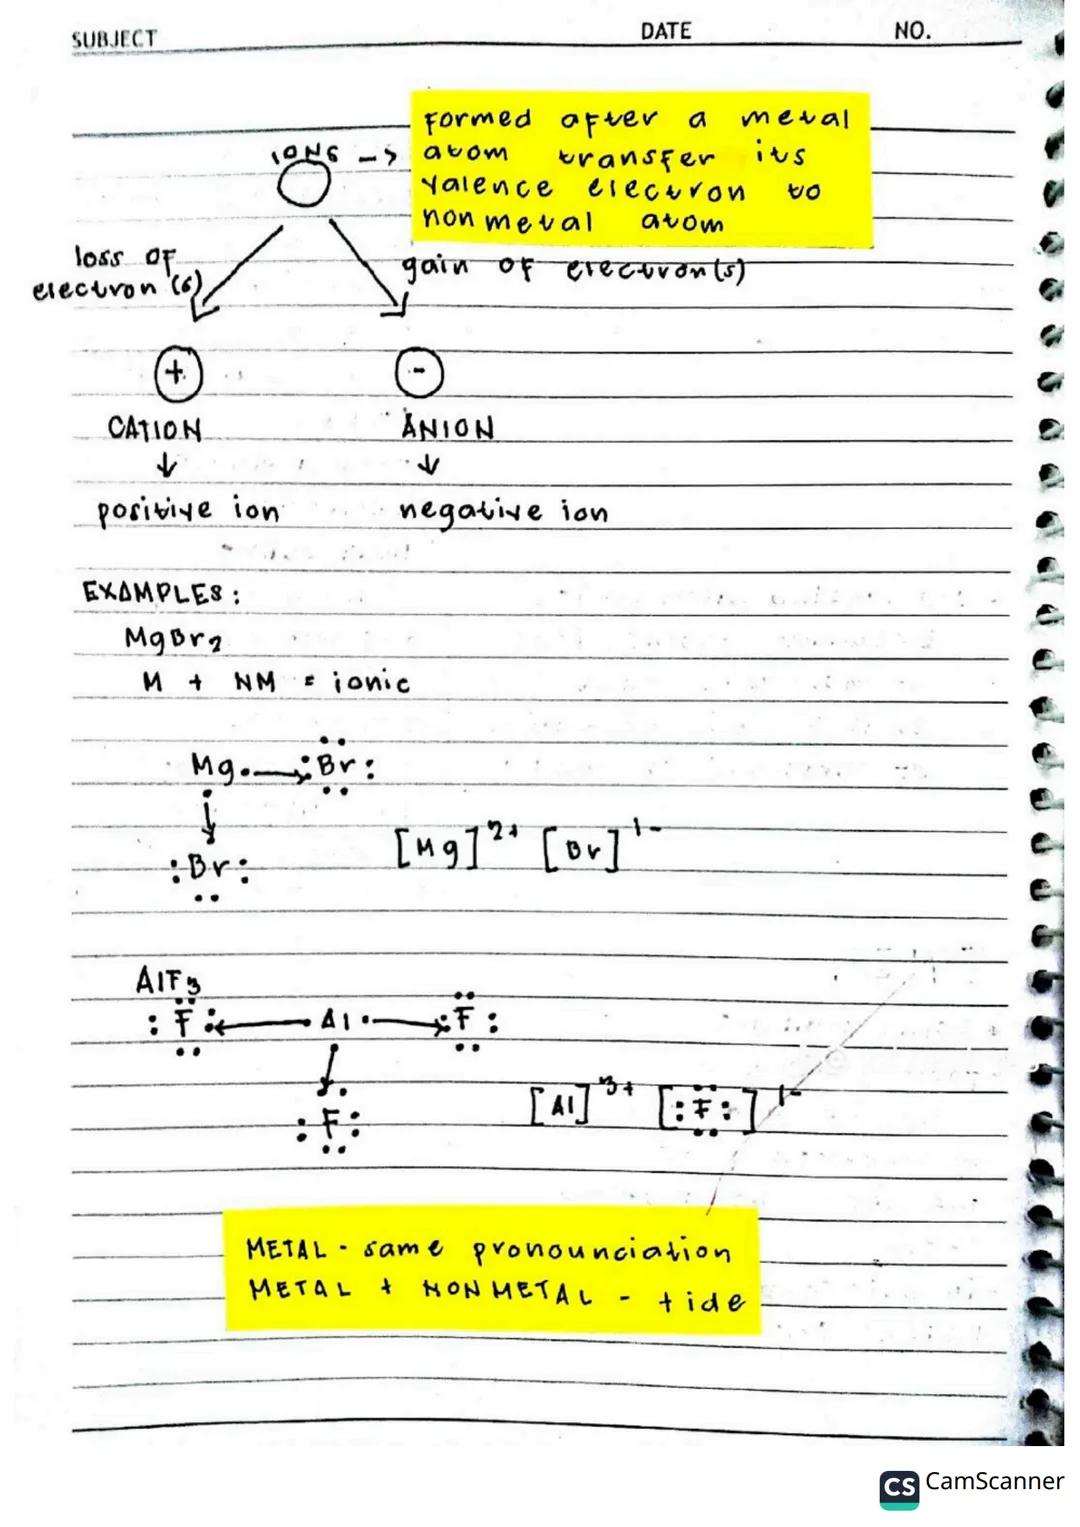 SUBJECT DATE NO.
IONS -> formed after a metal
atom transfer its
valence electron to
nonmetal atom
loss of
electron(s)
gain of electron(s)
+ -
CATION ANION
↓ ↓
positive ion negative ion
EXAMPLES:
MgBr2
M + NM = ionic
Mg Br
Br
[Mg]2+ [Br]1-
AlF3
F Al F
F
[Al]3+ [:F:]1-
METAL - same pronounciation
METAL + NONMETAL - + ide
CS CamScanner